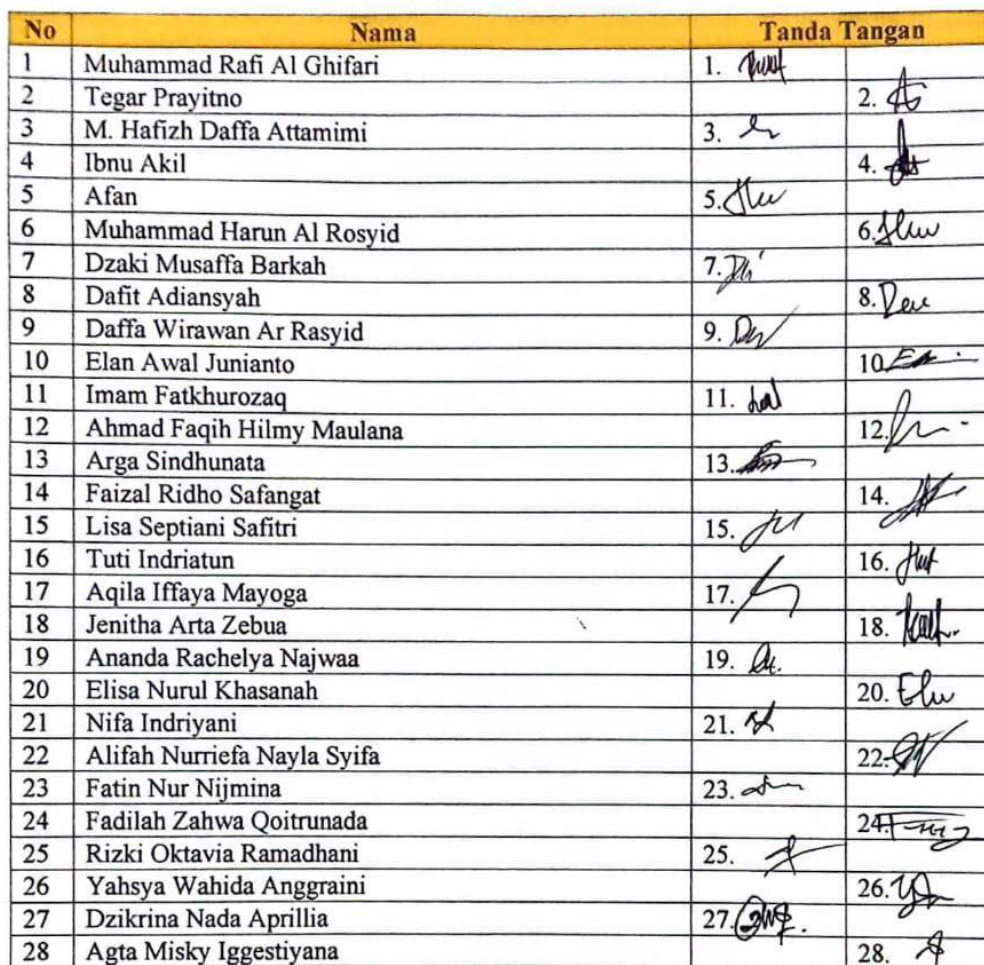 No Nama Tanda Tangan
1 Muhammad Rafi Al Ghifari 1.
2 Tegar Prayitno 2.
3 M. Hafizh Daffa Attamimi 3.
4 Ibnu Akil 4.
5 Afan 5.
6 Muhammad Harun Al Rosyid 6.
7 Dzaki Musaffa Barkah 7.
8 Dafit Adiansyah 8.
9 Daffa Wirawan Ar Rasyid 9.
10 Elan Awal Junianto 10
11 Imam Fatkhurozaq 11.
12 Ahmad Faqih Hilmy Maulana 12.
13 Arga Sindhunata 13.
14 Faizal Ridho Safangat 14.
15 Lisa Septiani Safitri 15.
16 Tuti Indriatun 16.
17 Aqila Iffaya Mayoga 17.
18 Jenitha Arta Zebua 18.
19 Ananda Rachelya Najwaa 19.
20 Elisa Nurul Khasanah 20.
21 Nifa Indriyani 21.
22 Alifah Nurriefa Nayla Syifa 22.
23 Fatin Nur Nijmina 23.
24 Fadilah Zahwa Qoitrunada 24.
25 Rizki Oktavia Ramadhani 25.
26 Yahsya Wahida Anggraini 26.
27 Dzikrina Nada Aprillia 27.
28 Agta Misky Iggestiyana 28.